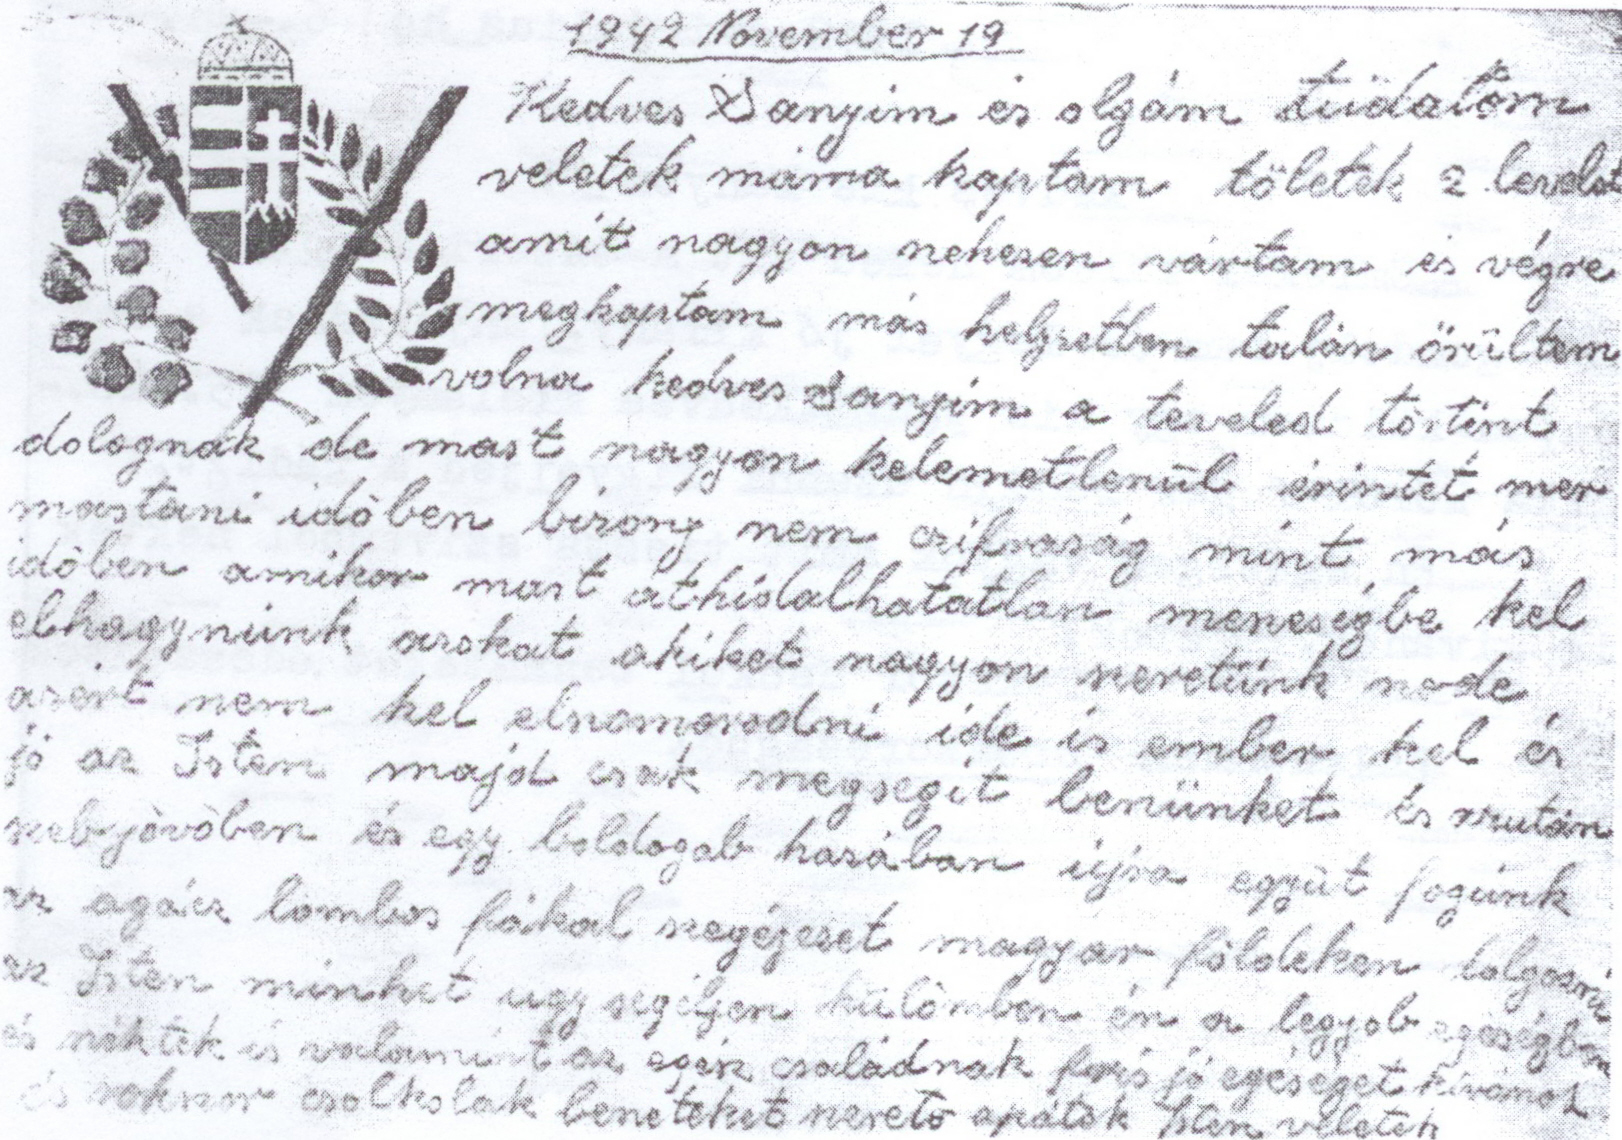 1942 November 19
Kedves Sanyim és olgám tüdatom
veletek máma kaptam töletek 2 levelet
amit nagyon nehezen vártam és végre
megkaptam más helyzetben talán örültem
volna kedves Sanyim a teveled törtint
dolognak de mast nagyon kelemetlenül érintet mer
mastani idöben bizony nem czifraság mint más
idöben amikor mast áthidalhatatlan meseségbe kel
elhagynünk azokat akiket nagyon szeretünk node
azért nem kel elszomorodni ide is ember kel és
jó az Isten majd csak megsegit benünket és azután
szebjövöben és egy boldogab hazában újra együt fogünk
az agácz lombos fákal szegéjezet magyar földeken dolgozni
az Isten minket ugy segéljen külömben én a legjob egeségben
és néktek is valamint az egész családnak friss jó egéséget kívánok
és sokszor csolkolak beneteket szeretö apátok Isten veletek